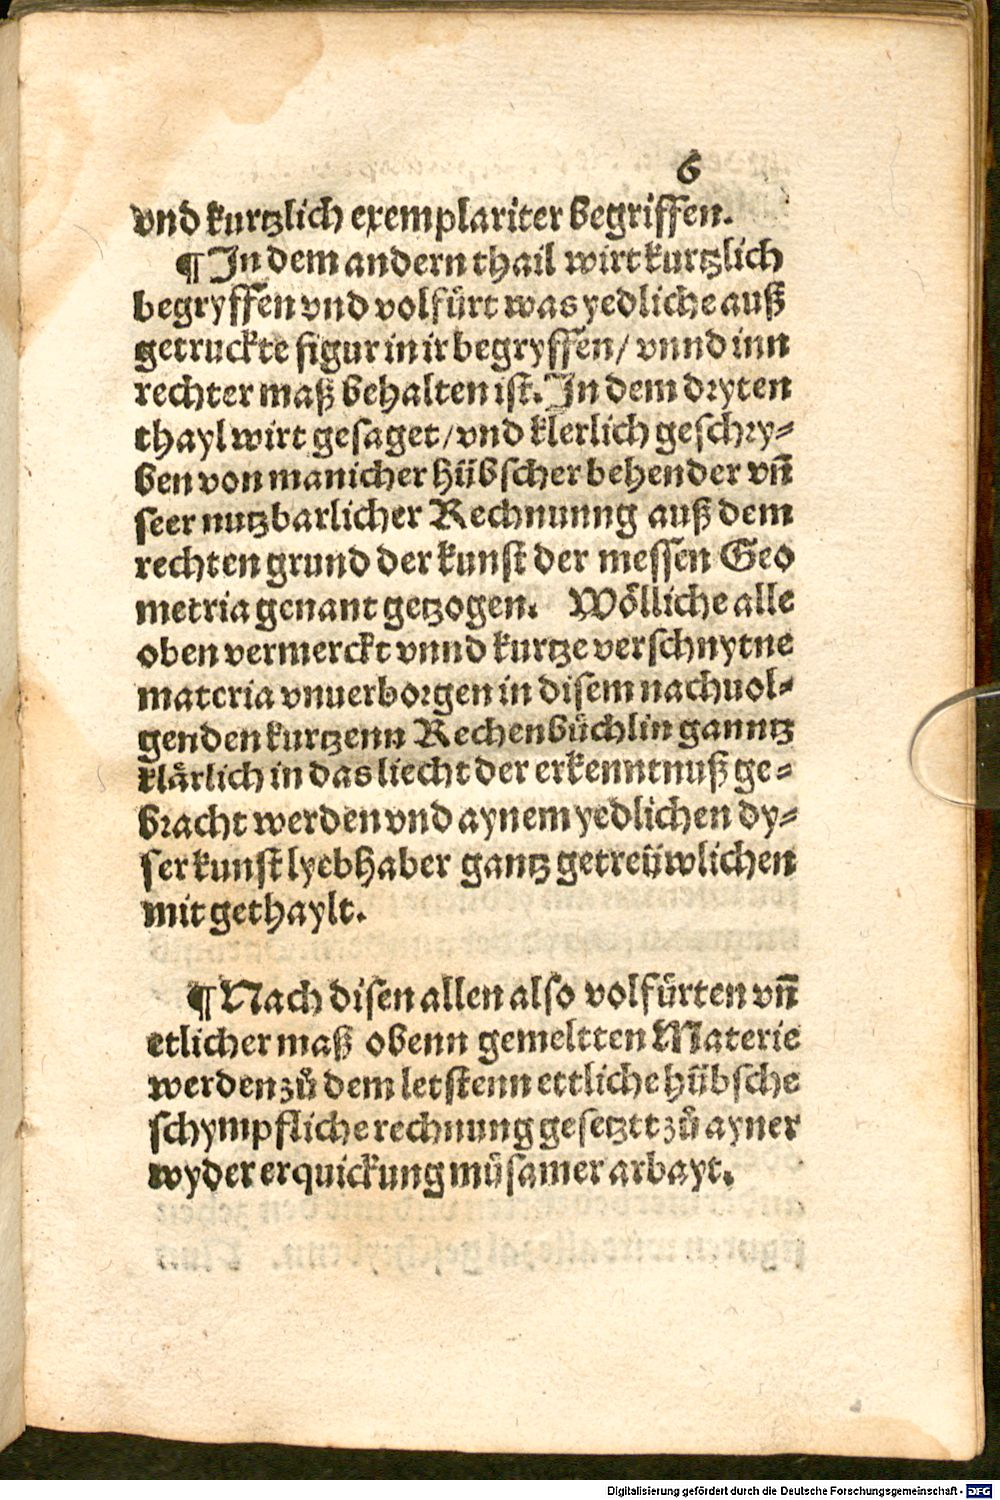 6
vnd kurtzlich exemplariter begriffen.
¶ In dem andern thail wirt kurtzlich
begryffen vnd volfürt was yedliche auß
getruckte figur in ir begryffen / vnnd inn
rechter maß behalten ist. In dem dryten
thayl wirt gesaget / vnd klerlich geschry⸗
ben von manicher hübscher behender vn̄
seer nutzbarlicher Rechnunng auß dem
rechten grund der kunst der messen Geo
metria genant getzogen. Wölliche alle
oben vermerckt vnnd kurtze verschnytne
materia vnuerborgen in disem nachuol⸗
genden kurtzenn Rechenbüchlin ganntz
klärlich in das liecht der erkenntnuß ge⸗
bracht werden vnd aynem yedlichen dy⸗
ser kunst lyebhaber gantz getreüwlichen
mit gethaylt.
¶ Nach disen allen also volfürten vn̄
etlicher maß obenn gemeltten Materie
werden zů dem letstenn ettliche hübsche
schympfliche rechnung gesetztt zů ayner
wyder erquickung müsamer arbayt.
Digitalisierung gefördert durch die Deutsche Forschungsgemeinschaft - DFG